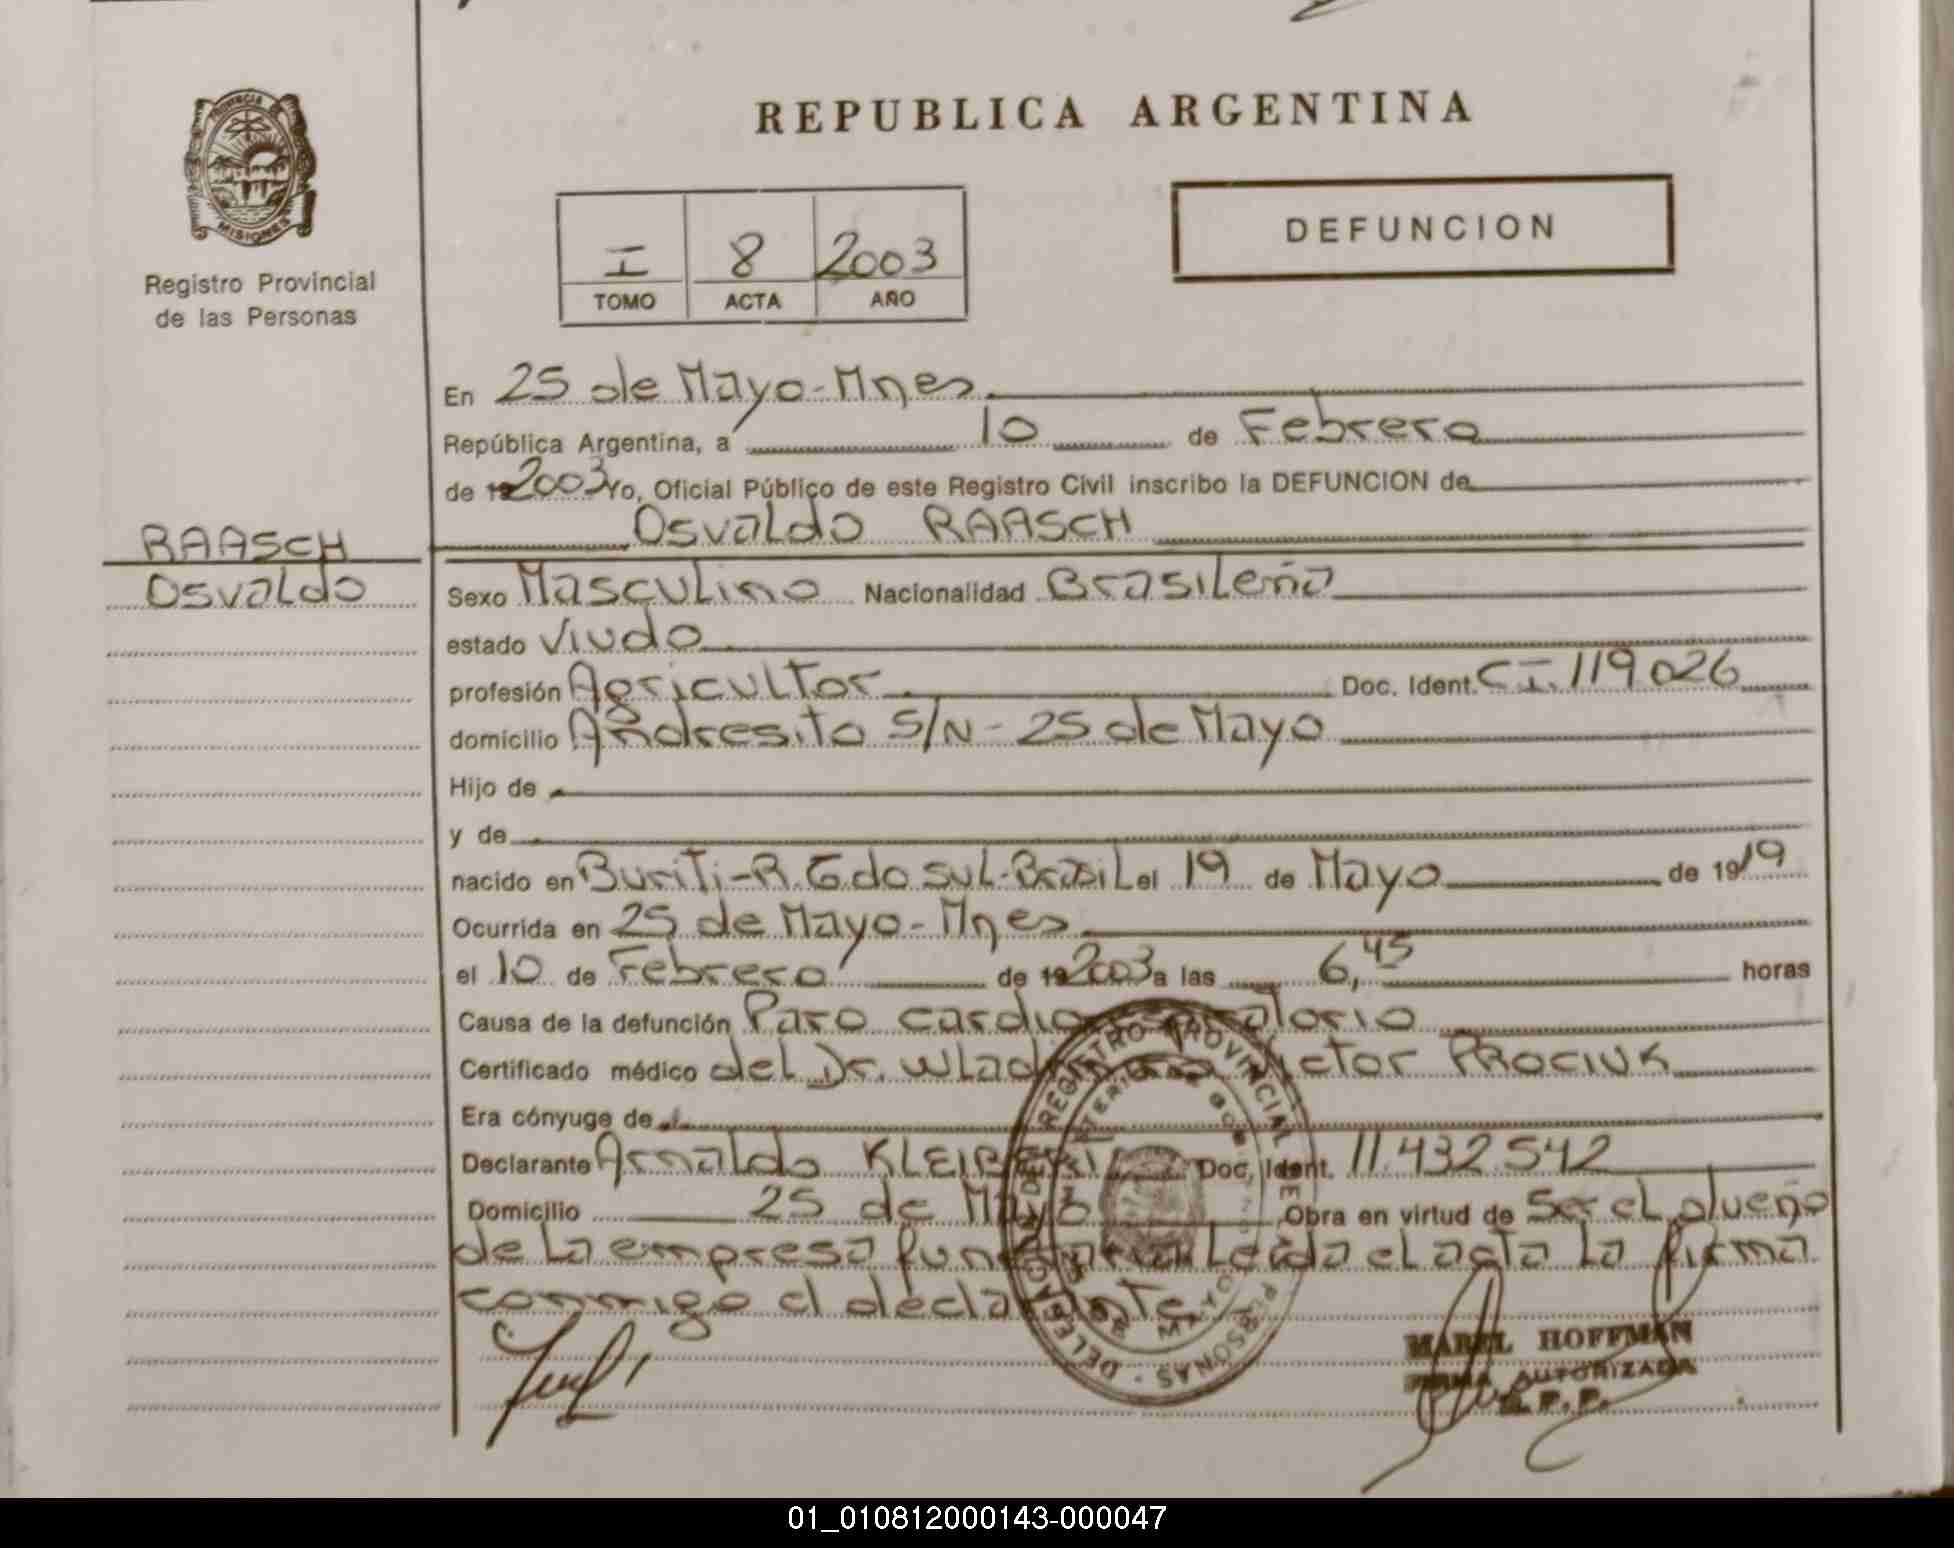 REPUBLICA ARGENTINA
PROVINCIA
MISIONES
Registro Provincial
de las Personas
DEFUNCION
I 8 2003
TOMO ACTA AÑO
En 25 de Mayo - Mnes
República Argentina, a 10 de Febrero
de 19 2003 Yo, Oficial Público de este Registro Civil inscribo la DEFUNCION de
Osvaldo RAASCH
RAASCH
Osvaldo
Sexo Masculino Nacionalidad Brasileña
estado Viudo
profesión Agricultor Doc. Ident. C.I. 119026
domicilio Andresito S/N - 25 de Mayo
Hijo de
y de
nacido en Buriti - R.G.do sul - Brasil el 19 de Mayo de 1919
Ocurrida en 25 de Mayo - Mnes
el 10 de Febrero de 19 2003 a las 6,45 horas
Causa de la defunción Paro cardio
Certificado médico del Dr. PROCIUK
Era cónyuge de
Declarante Arnaldo Doc. Ident. 11.432.542
Domicilio 25 de Mayo Obra en virtud de Ser el dueño
de la empresa Leida el acta la firma
conmigo el declarante
REGISTRO PROVINCIAL DE LAS PERSONAS
DELEGACION
MAYO
MABEL HOFFMAN
FIRMA AUTORIZADA
R.P.P.
01_010812000143-000047